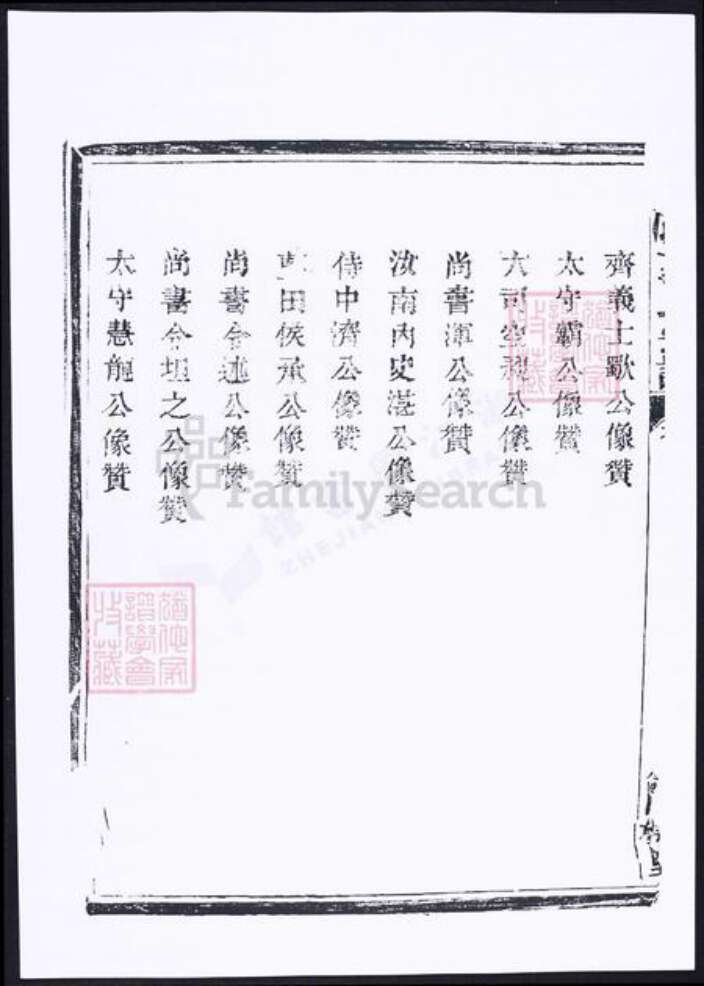 齊義士歜公像贊
太守霸公像贊
大司空昶公像贊
尚書渾公像贊
汝南內史湛公像贊
侍中濟公像贊
田侯承公像贊
尚書令述公像贊
尚書令坦之公像贊
太守慧龍公像贊
FamilySearch
譜學會
收藏